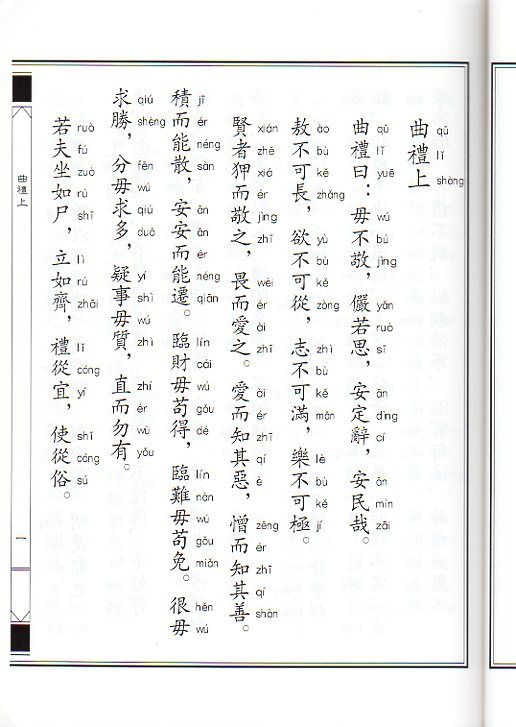 曲禮上
qū lǐ shàng
曲禮曰：毋不敬，儼若思，安定辭，安民哉。
qū lǐ yuē wú bú jìng yǎn ruò sī ān dìng cí ān mín zāi
敖不可長，欲不可從，志不可滿，樂不可極。
ào bù kě zhǎng yù bù kě zòng zhì bù kě mǎn lè bù kě jí
賢者狎而敬之，畏而愛之。愛而知其惡，憎而知其善。
xián zhě xiá ér jìng zhī wèi ér ài zhī ài ér zhī qí è zēng ér zhī qí shàn
積而能散，安安而能遷。臨財毋苟得，臨難毋苟免。很毋
jī ér néng sàn ān ān ér néng qiān lín cái wú gǒu dé lín nàn wú gǒu miǎn hěn wú
求勝，分毋求多，疑事毋質，直而勿有。
qiú shèng fēn wú qiú duō yí shì wú zhì zhí ér wù yǒu
若夫坐如尸，立如齊，禮從宜，使從俗。
ruò fú zuò rú shī lì rú zhāi lǐ cóng yí shǐ cóng sú
曲禮上
一